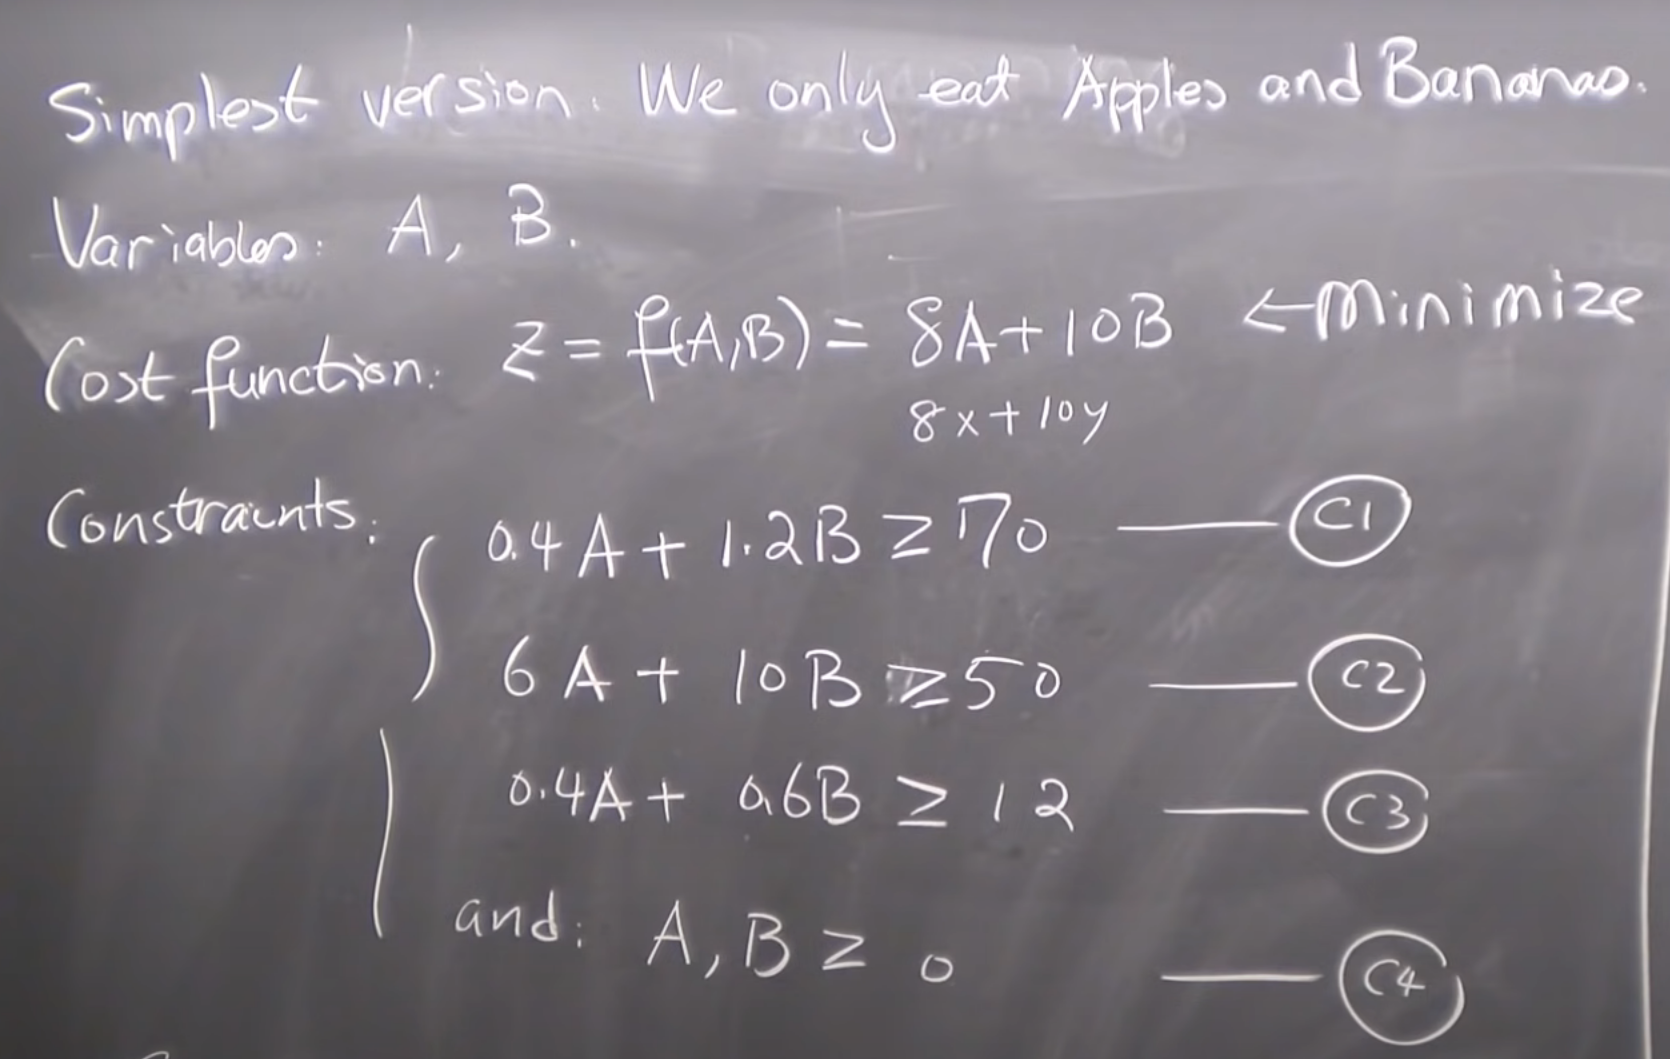 Simplest version: We only eat Apples and Bananas.
Variables: A, B.
Cost function: Z = f(A,B) = 8A + 10B ← Minimize
8x + 10y
Constraints:
0.4A + 1.2B ≥ 70 — C1
6A + 10B ≥ 50 — C2
0.4A + 0.6B ≥ 12 — C3
and: A, B ≥ 0 — C4